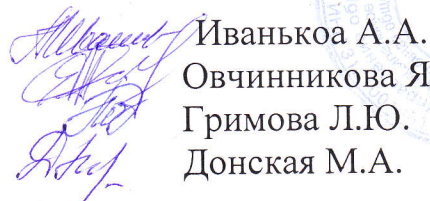 Иванькоа А.А.
Овчинникова Я
Гримова Л.Ю.
Донская М.А.